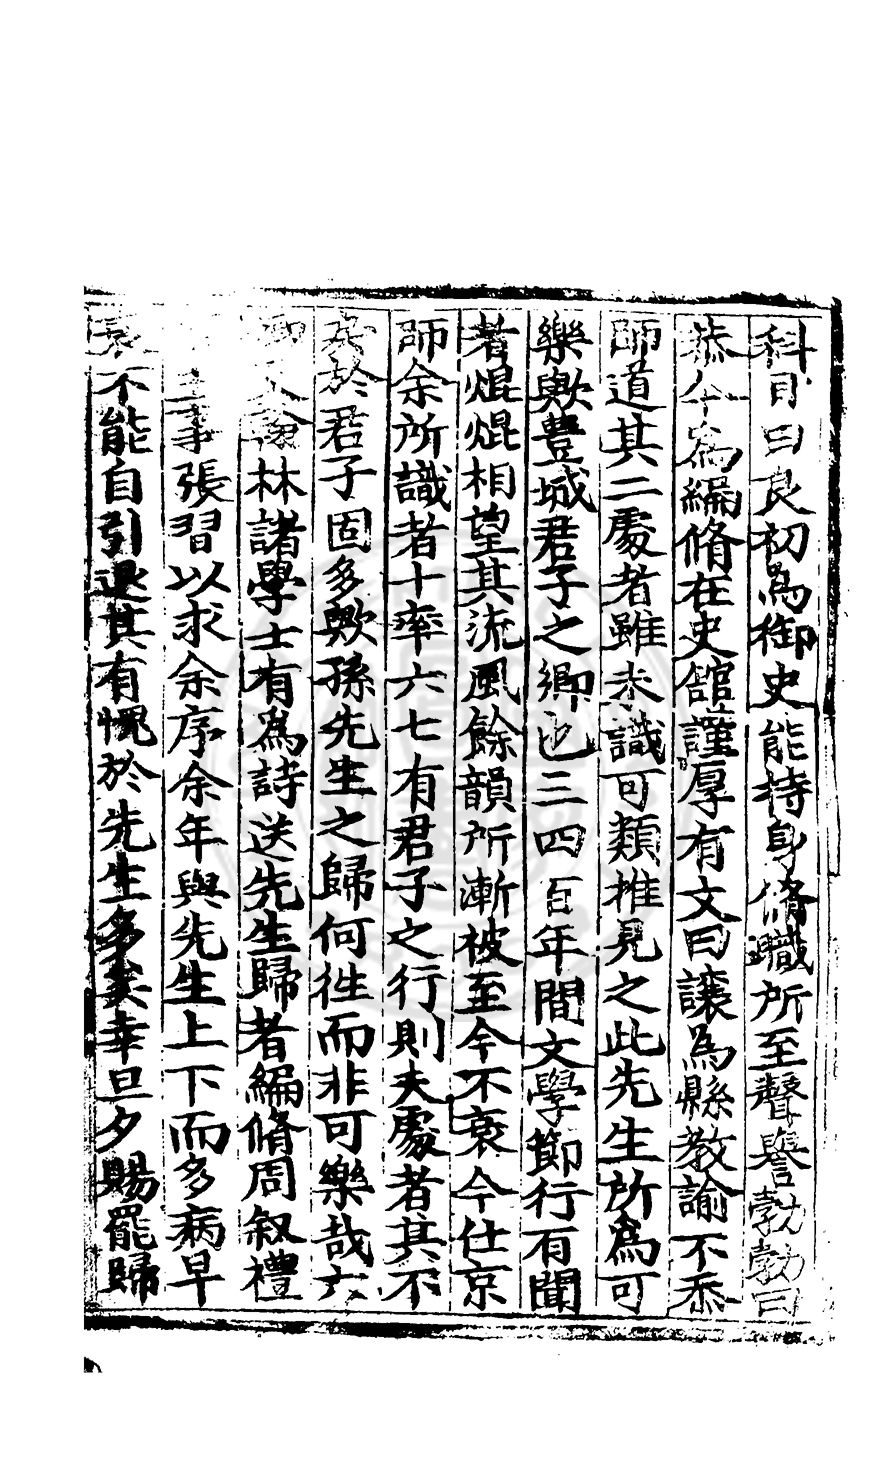 科目曰良初為御史能持身脩職所至聲譽勃勃曰
恭今為編脩在史館謹厚有文曰讓為縣教諭不忝
師道其二處者雖未識可類推見之此先生所為可
樂歟豐城君子之鄉也三四百年間文學節行有聞
者焜焜相望其流風餘韻所漸被至今不衰今仕京
師余所識者十率六七有君子之行則夫處者其不
於君子固多歟孫先生之歸何徃而非可樂哉六
林諸學士有為詩送先生歸者編脩周叙禮
主事張習以求余序余年與先生上下而多病早
不能自引退其有愧於先生多矣幸旦夕賜罷歸